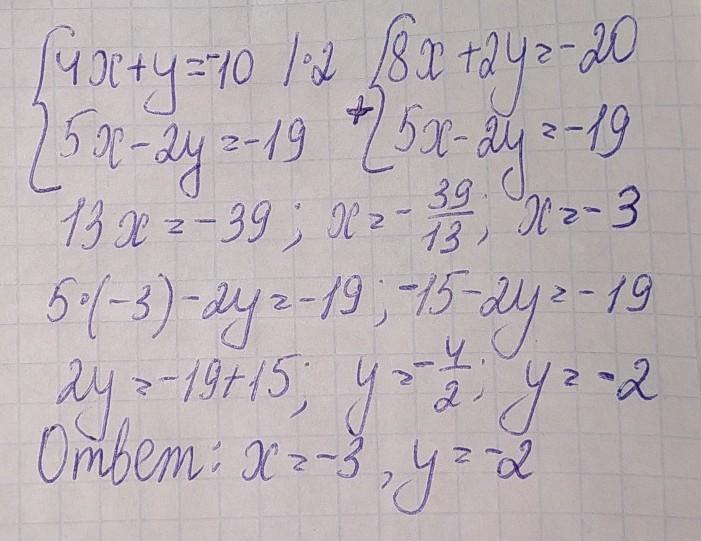 {4x+y=-10 |·2 {8x+2y=-20
{5x-2y=-19 + {5x-2y=-19
13x=-39; x=-39/13; x=-3
5·(-3)-2y=-19; -15-2y=-19
2y=-19+15; y=-4/2; y=-2
Ответ: x=-3, y=-2